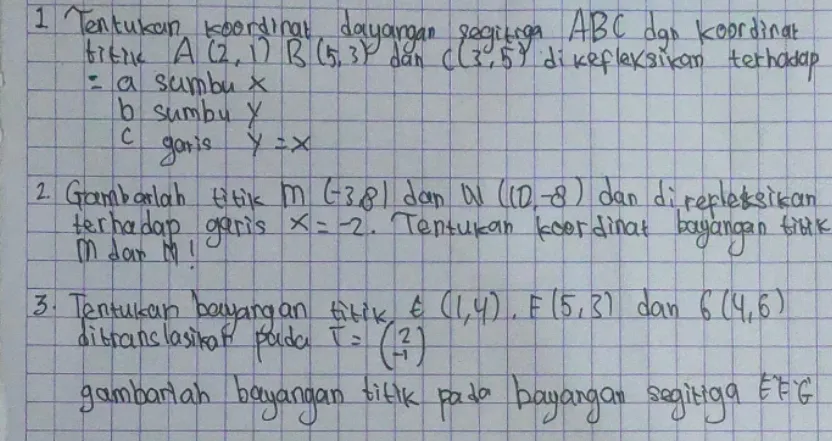 1 Tentukan koordinat dayangan segitiga ABC dgn koordinat
titik A (2,1) B (5,3) dan C(3,5) di refleksikan terhadap
= a sumbu x
b sumbu y
c garis y = x
2. Gambarlah titik M (-3,8) dan N (10,-8) dan di refleksikan
terhadap garis x = -2. Tentukan koordinat bayangan titik
M dan N!
3. Tentukan bayangan titik E (1,4), F (5,3) dan G (4,6)
ditranslasikan pada T = (2 -1)
gambarlah bayangan titik pada bayangan segitiga EFG